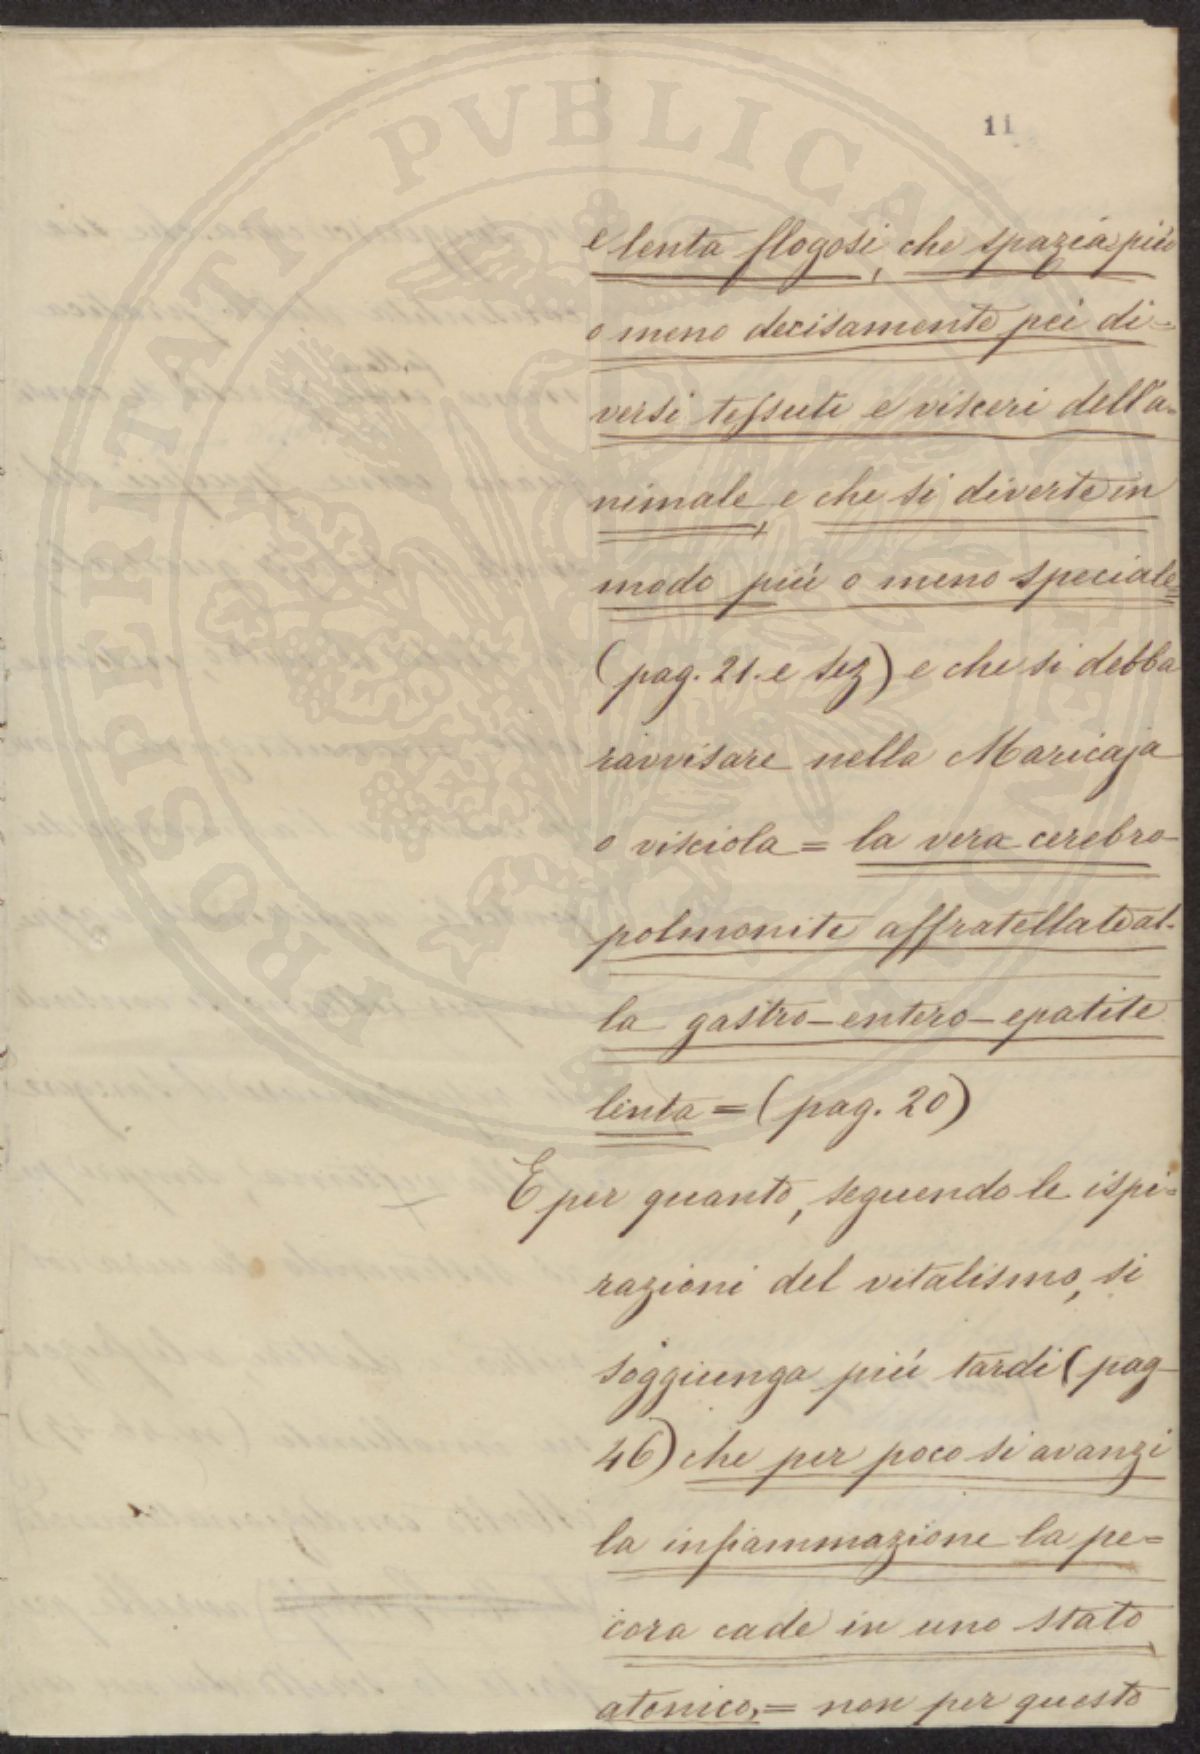 11
e lenta flogosi, che spazia più
o meno decisamente pei di=
versi tessuti e visceri dell'a=
nimale, e che si diverte in
modo più o meno speciale=
(pag. 21. e seg) e che si debba
ravvisare nella Maricaja
o visciola = la vera cerebro-
polmonite affratellate al-
la gastro-entero-epatite
lenta = (pag. 20)
E per quanto, seguendo le ispi=
razioni del vitalismo, si
soggiunga più tardi (pag
46) che per poco si avanzi
la infiammazione la pe=
cora cade in uno stato
atonico, = non per questo
PROSPERITATI PVBLICAE